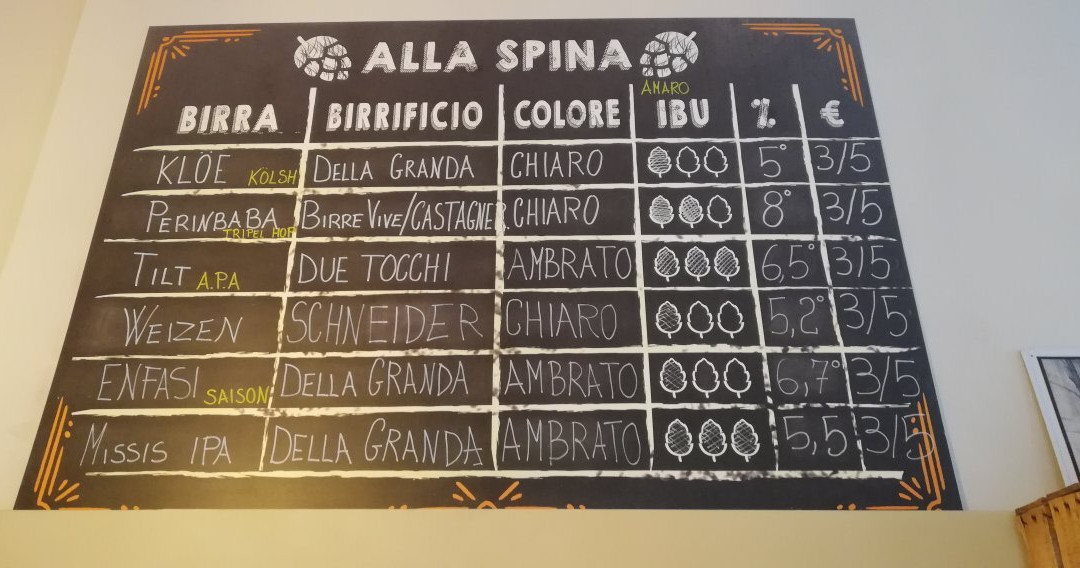 ALLA SPINA
AMARO
BIRRA BIRRIFICIO COLORE IBU % €
KLÖE KÖLSH DELLA GRANDA CHIARO 5° 3/5
PERINBABA TRIPEL HOP BIRRE VIVE/CASTAGNER. CHIARO 8° 3/5
TILT A.P.A DUE TOCCHI AMBRATO 6,5° 3/5
WEIZEN SCHNEIDER CHIARO 5,2° 3/5
ENFASI SAISON DELLA GRANDA AMBRATO 6,7° 3/5
MISSIS IPA DELLA GRANDA AMBRATO 5,5 3/5